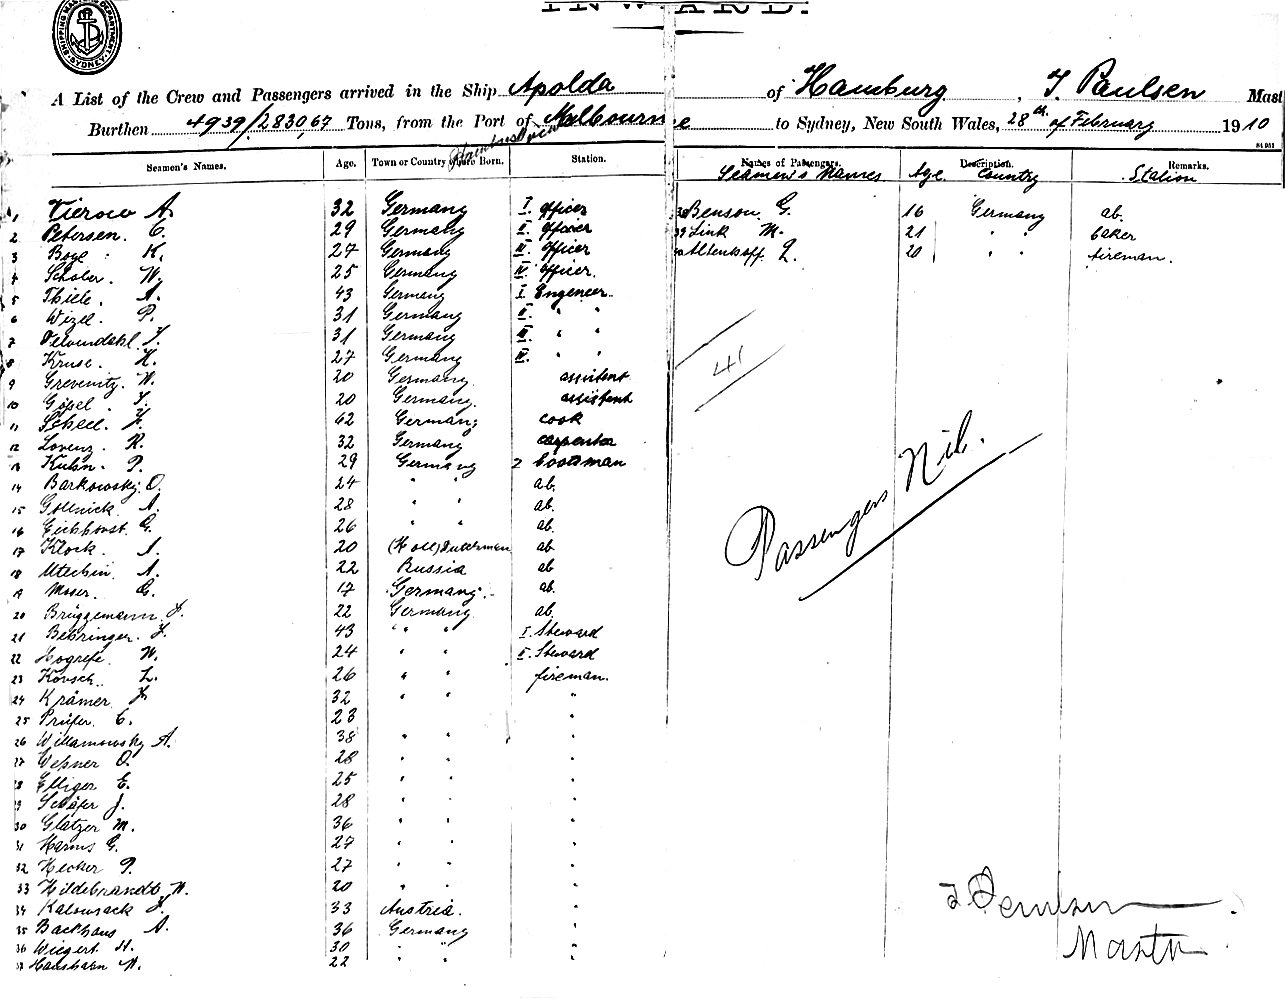 INWARD.
SHIPPING MASTERS DEPARTMENT. SYDNEY
A List of the Crew and Passengers arrived in the Ship Apolda of Hamburg, J. Paulsen Mast
Burthen 4939/2830,67 Tons, from the Port of Melbourne to Sydney, New South Wales, 28th of February 1910
Seamen's Names. Age. Town or Country where Born. Station. Names of Passengers. Description. Remarks.
Seamen's Names Age Country Station
1 Vierow A. 32 Germany I. officer 38 Benson G. 16 Germany ab.
2 Petersen. C. 29 Germany II. officer 39 Link M. 21 " " baker
3 Boye K. 27 Germany III. officer 40 Altenhoff L. 20 " " fireman.
4 Schober W. 25 Germany IV. officer.
5 Thiele. A. 43 Germany I Engeneer.
6 Wizel. P. 31 Germany II. " "
7 J. 31 Germany III. " "
8 Kruse. H. 27 Germany IV. " "
9 Grevenitz. W. 20 Germany. assistent
10 Göpel J. 20 Germany. assistent
11 Scheel. F. 62 Germany cook
12 Lorenz. R. 32 Germany carpenter
13 Kuhn. P. 29 Germany bootsman
14 Barkowsky. O. 24 " " ab.
15 Gollnick A. 28 " " ab.
16 Eichhorst G. 26 " " ab.
17 Klock. A. 20 (Holl) Dutchman ab
18 Utechin A. 22 Russia ab
19 Moser. G. 17 Germany. ab.
20 Brüggemann J. 22 Germany. ab.
21 Behringer. F. 43 " " I. Steward
22 Hogrefe. W. 24 " " II. Steward
23 Körsch. L. 26 " " fireman.
24 Krämer F. 32 " " "
25 Prüfer. C. 23 " " "
26 Willamowsky A. 38 " " "
27 Wesner O. 28 " " "
28 Elliger E. 25 " " "
29 Schäfer J. 28 " " "
30 Glatzer M. 36 " " "
31 Harms G. 27 " " "
32 Hecker P. 27 " " "
33 Hildebrandt W. 20 " " "
34 Kalousack J. 33 Austria. "
35 Backhaus A. 36 Germany "
36 Wiegert H. 30 " " "
37 Haushahn W. 22 " " "
41
Passengers Nil.
J Paulsen
Master